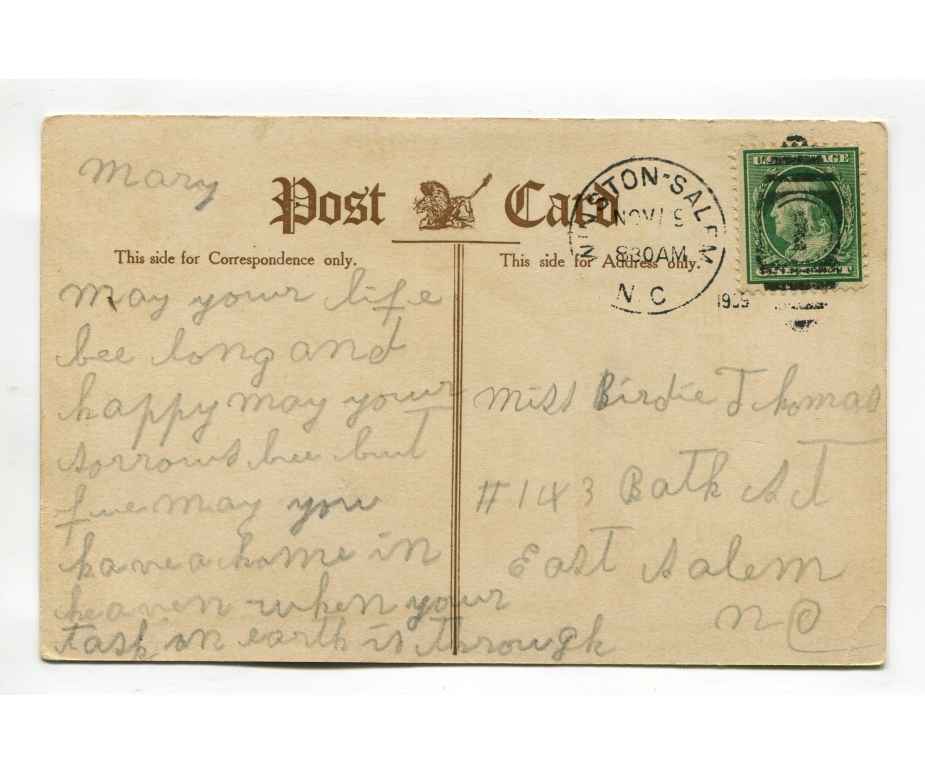 Mary
Post Card
This side for Correspondence only.
This side for Address only.
WINSTON-SALEM
NOV 19
830AM
N C
1909
May your life
bee long and
happy may your
sorrows bee but
few may you
have a home in
heaven when your
task on earth is through
Miss Birdie Thomas
#143 Bath St
East Salem
N C